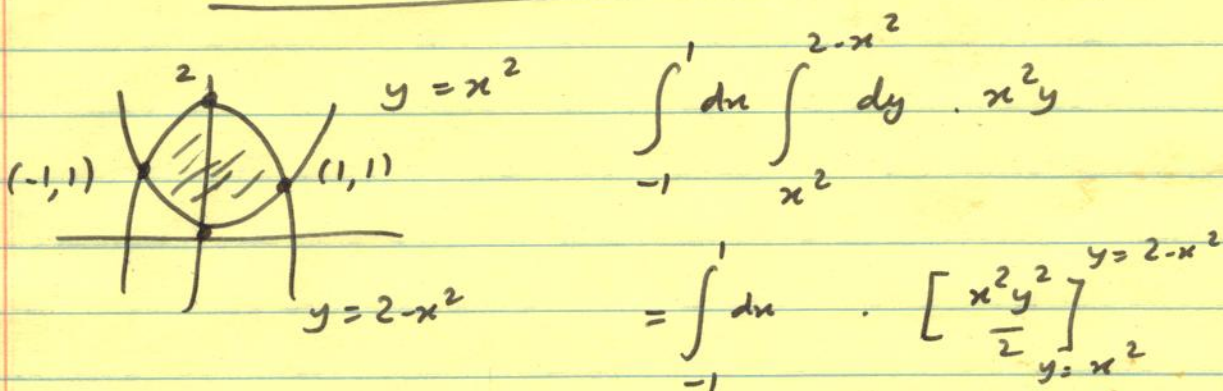 2
y = x²
(-1,1)
(1,1)
y = 2-x²
∫₋₁¹ dx ∫_{x²}^{2-x²} dy . x²y
= ∫₋₁¹ dx . [ x²y²/2 ]_{y=x²}^{y=2-x²}